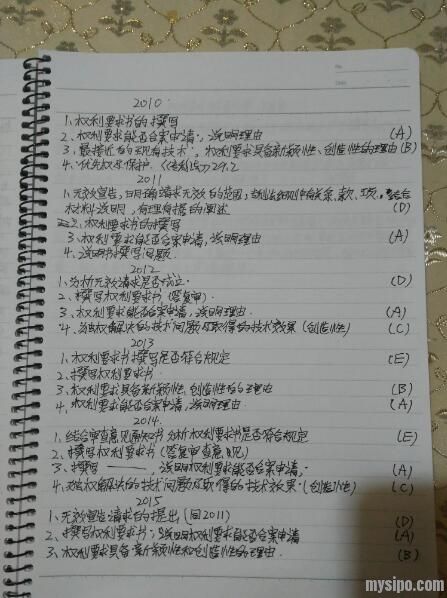 2010
1、权利要求书的撰写
2、权利要求能否合案申请,说明理由 (A)
3、最接近的现有技术,权利要求具备新颖性、创造性的理由 (B)
4、优先权与保护,《专利法》29.2
2011
1、无效宣告,明确请求无效的范围,实施细则中有关条、款、项。结合
材料说明,有理有据的阐述 (D)
2、权利要求书的撰写
3、权利要求能否合案申请,说明理由 (A)
4、说明书撰写问题
2012
1、分析无效请求是否成立 (D)
2、撰写权利要求书(答复审)
3、权利要求能否合案申请,说明理由. (A)
4、独权解决的技术问题及取得的技术效果(创造性) (C)
2013
1、权利要求书撰写是否符合规定 (E)
2、撰写权利要求书.
3、权利要求具备新颖性、创造性的理由 (B)
4、权利要求能否合案申请,说明理由 (A)
2014.
1、结合审查意见通知书分析权利要求书是否符合规定 (E)
2、撰写权利要求书(答复审查意见)
3、撰写——,说明权利要求能否合案申请 (A)
4、独权解决的技术问题及取得的技术效果.(创造性) (C)
2015
1、无效宣告请求的提出(同2011) (D)
2、撰写权利要求书,说明权利要求能否合案申请 (A)
3、权利要求具备新颖性和创造性的理由. (B)
mysipo.com